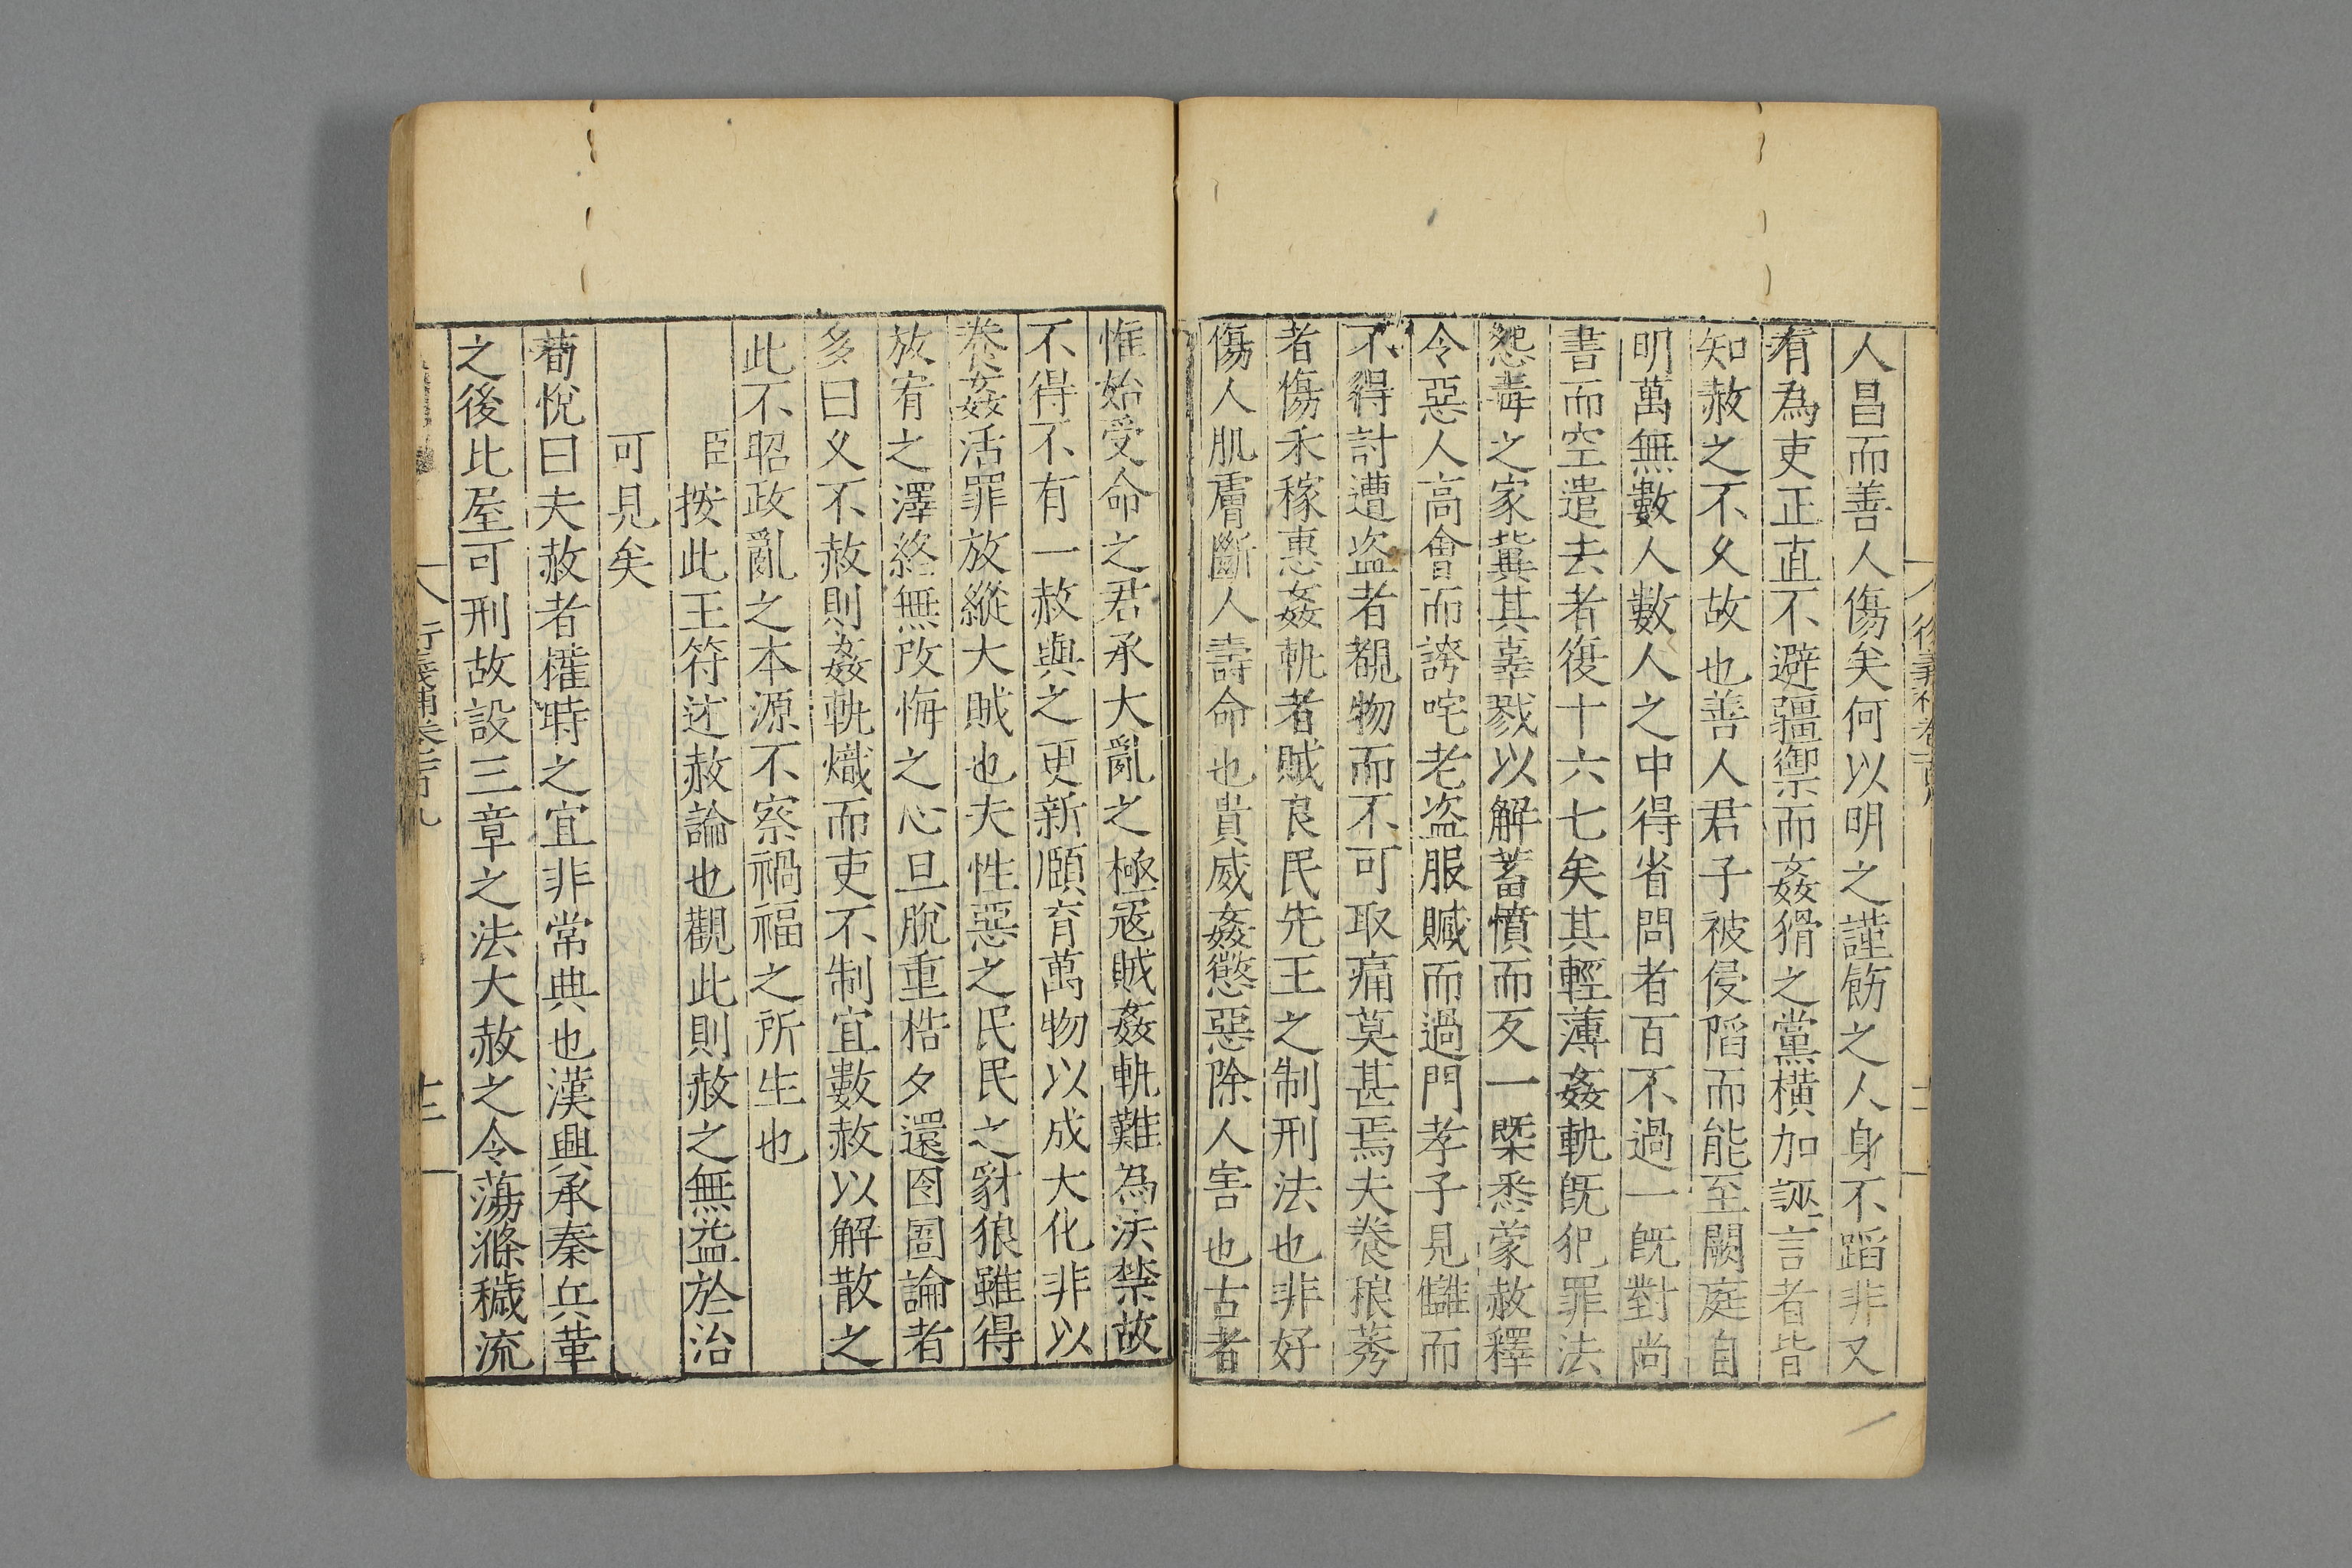 人昌而善人傷矣何以明之謹飭之人身不蹈非又
有為吏正直不避疆禦而姦猾之黨橫加誣言者皆
知赦之不久故也善人君子被侵陷而能至闕庭自
明萬無數人數人之中得省問者百不過一既對尚
書而空遣去者復十六七矣其輕薄姦軌既犯罪法
怨毒之家冀其辜戮以解蓄憤而反一槩悉蒙赦釋
令惡人高會而誇咤老盜服贓而過門孝子見讎而
不得討遭盜者覩物而不可取痛莫甚焉夫養稂莠
者傷禾稼惠姦軌者賊良民先王之制刑法也非好
傷人肌膚斷人壽命也貴威姦懲惡除人害也古者
惟始受命之君承大亂之極寇賊姦軌難為法禁故
不得不有一赦與之更新願育萬物以成大化非以
養姦活罪放縱大賊也夫性惡之民民之豺狼雖得
放宥之澤終無改悔之心旦脫重梏夕還囹圄論者
多曰久不赦則姦軌熾而吏不制宜數赦以解散之
此不昭政亂之本源不察禍福之所生也
臣按此王符述赦論也觀此則赦之無益於治
可見矣
荀悅曰夫赦者權時之宜非常典也漢興承秦兵革
之後比屋可刑故設三章之法大赦之令蕩滌穢流
衍義補卷一百九